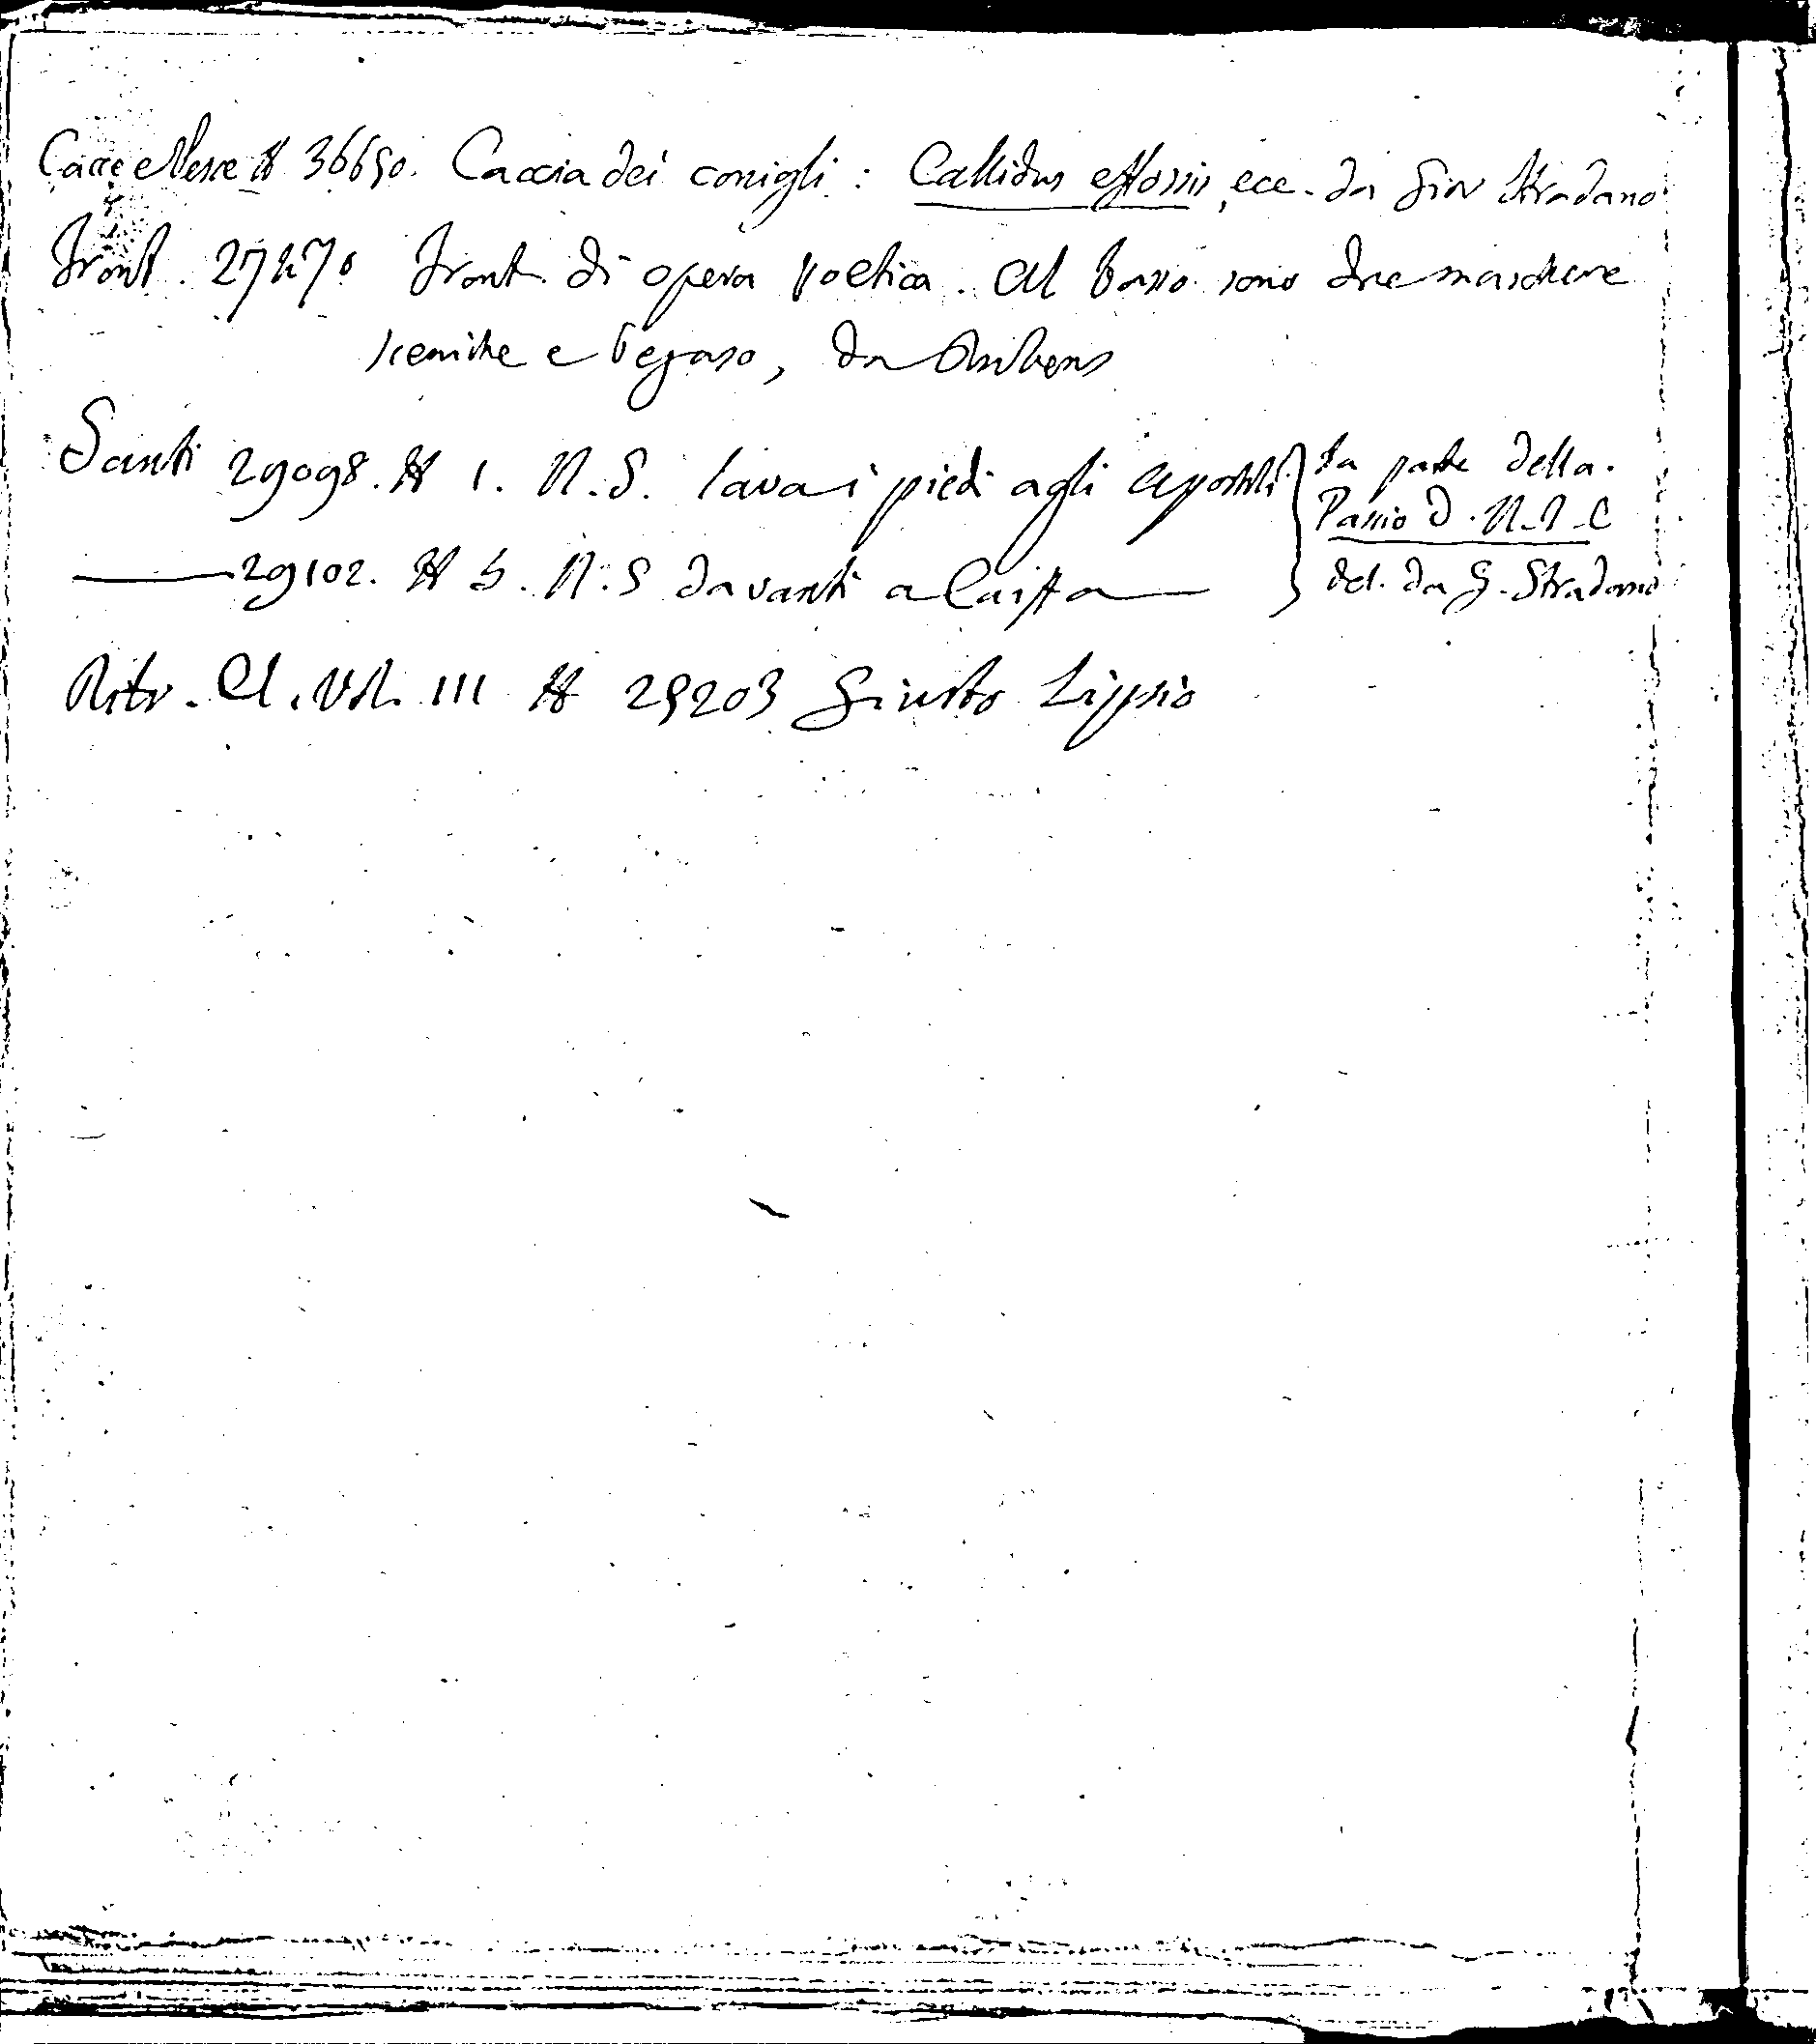 Cacce e Pesce # 36650. Caccia dei conigli: Callidus effossis, ecc. da Giov Stradano
Front. 27470 Front. di opera poetica. Al basso sono due maschere
sceniche e Pegaso, da Rubens
Santi 29098. # 1. N.S. lava i piedi agli Apostoli } fa parte della
Passio D. N. J. C
—— 29102. # 5. N.S davanti a Caifa — del. da G. Stradano
Ritr. Cl. Vol. III # 29203 Giusto Lipsio